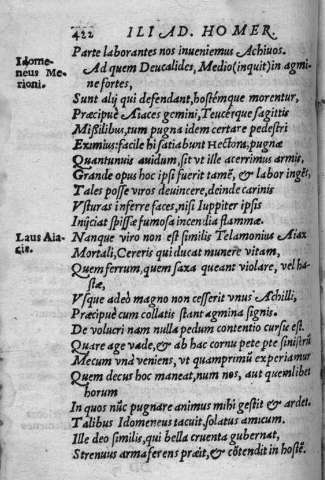 422 ILIAD. HOMER.
Parte laborantes nos inueniemus Achiuos.
Idome-
neus Me-
rioni.
Ad quem Deucalides, Medio (inquit) in agmi-
ne fortes,
Sunt alij qui defendant, hostémque morentur,
Præcipuè Aiaces gemini, Teucérque sagittis
Missilibus, tum pugna idem certare pedestri
Eximius: facile hi satiabunt Hectora, pugnæ
Quantumuis auidum, sit vt ille acerrimus armis,
Grande opus hoc ipsi fuerit tamē, & labor ingēs,
Tales posse viros deuincere, deinde carinis
Vsturas inferre faces, nisi Iuppiter ipsis
Inijciat spissæ fumosa incendia flammæ.
Laus Aia-
cis.
Nanque viro non est similis Telamonius Aiax
Mortali, Cereris qui ducat munere vitam,
Quem ferrum, quem saxa queant violare, vel ha-
stæ,
Vsque adeò magno non cesserit vnus Achilli,
Præcipuè cum collatis stant agmina signis.
De volucri nam nulla pedum contentio cursu est.
Quare age vade, & ab hac cornu pete pte sinistrū
Mecum vnà veniens, vt quamprimū experiamur
Quem decus hoc maneat, num nos, aut quemlibet
horum
In quos nūc pugnare animus mihi gestit & ardet.
Talibus Idomeneus tacuit, solatus amicum.
Ille deo similis, qui bella cruenta gubernat,
Strenuus arma ferens præit, & cōtendit in hostē.